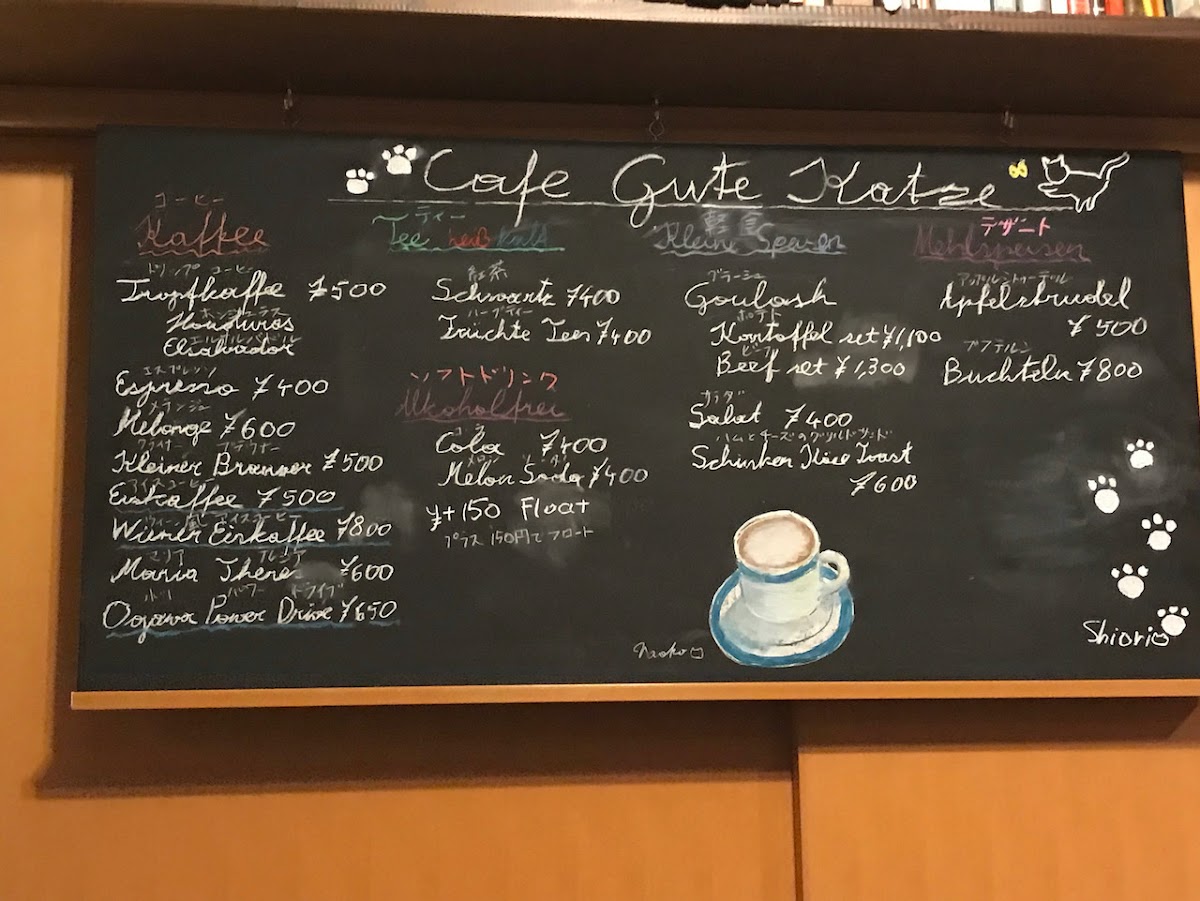 Cafe Gute Katze
コーヒー
Kaffee
ドリップ コーヒー
Tropfkaffe ¥500
ホンジュラス
Honduras
エルサルバドル
Elsalvador
エスプレッソ
Espresso ¥400
メランジェ
Melange ¥600
クライナー ブラウナー
Kleiner Brauner ¥500
アイスコーヒー
Eiskaffee ¥500
ウィーン風 アイスコーヒー
Wiener Eiskaffee ¥800
マリア テレジア
Maria There ¥600
パワー ドライブ
Ogawa Power Drive ¥650
ティー
Tee heiß Kalt
紅茶
Schwartz ¥400
ハーブティー
Früchte Teen ¥400
ソフトドリンク
Alkoholfrei
コーラ
Cola ¥400
メロン ソーダ
Melon Soda ¥400
¥+150 Float
プラス 150円でフロート
軽食
Kleine Speisen
グラーシュ
Goulash
ポテト
Kartoffel set ¥1,100
ビーフ
Beef set ¥1,300
サラダ
Salat ¥400
ハムとチーズのグリルドサンド
Schinken Käse Toast
¥600
デザート
Mehlspeisen
アップルシュトゥルーデル
Apfelstrudel
¥500
ブフテルン
Buchteln ¥800
Naoko
Shiori